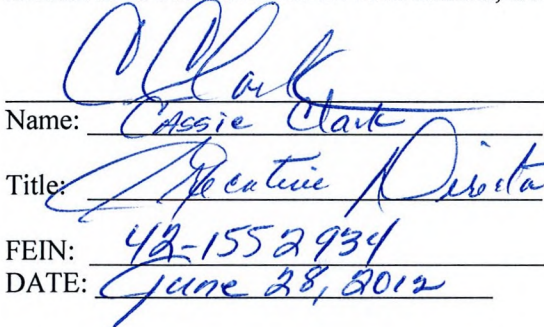 C Clark
Name: Cassie Clark
Title: Executive Director
FEIN: 42-1552934
DATE: June 28, 2012